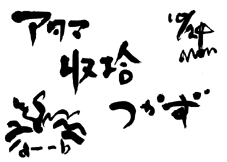 アタマ
収拾
つかず
10/24
mon
a---b